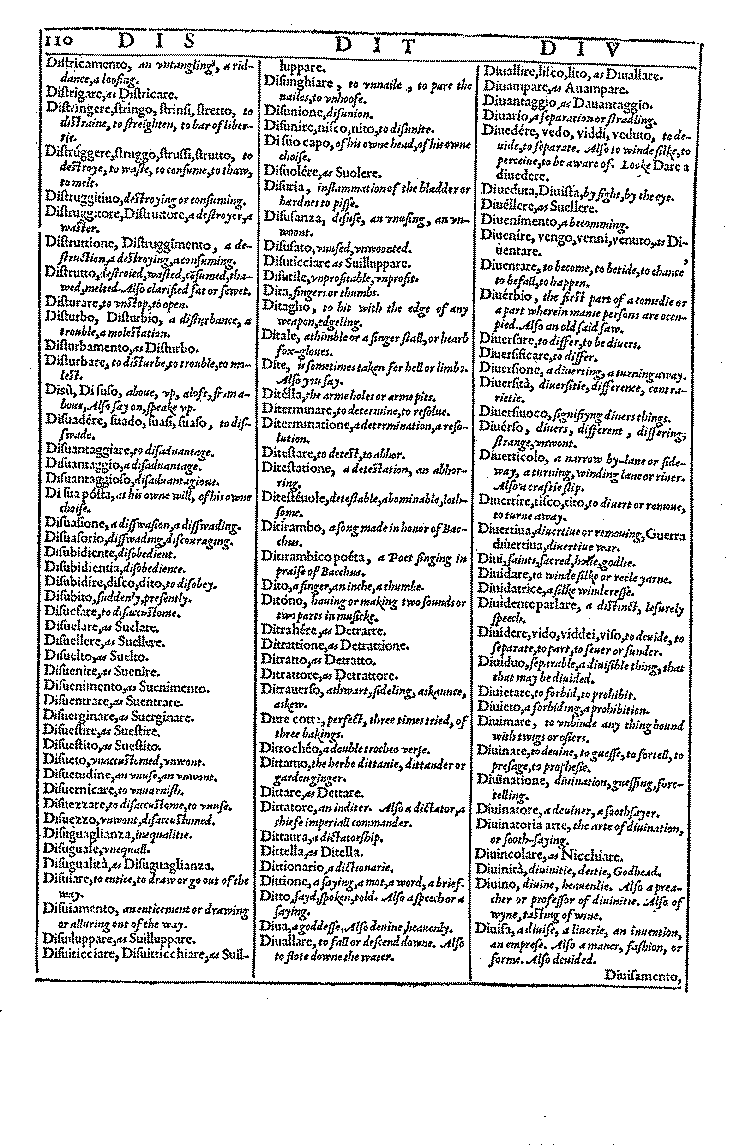 110 DIS DIT DIV
Districamento, an vntangling, a rid-
dance, a loosing.
Distrigare, as Districare.
Distríngere, stringo, strinsi, stretto, to
distraine, to streighten, to bar of liber-
tie.
Distrúggere, struggo, strussi, strutto, to
destroye, to waste, to consume, to thaw,
to melt.
Distruggitiuo, destroying or consuming.
Distruggitore, Distruttore, a destroyer, a
waster.
Distruttione, Distruggimento, a de-
struction, a destroying, a consuming.
Distrutto, destroied, wasted, cōsumed, tha-
wed, melted. Also clarified fat or sewet.
Disturare, to vnstop, to open.
Disturbo, Disturbio, a disturbance, a
trouble, a molestation.
Disturbamento, as Disturbo.
Disturbare, to disturbe, to trouble, to mo-
lest.
Disú, Di suso, aboue, vp, aloft, from a-
boue. Also say on, speake vp.
Disuadére, suado, suasi, suaso, to dis-
swade.
Disuantaggiare, to disaduantage.
Disuantaggio, a disaduantage.
Disuantaggioso, disaduantagious.
Di sua pósta, at his owne will, of his owne
choise.
Disuasione, a disswasion, a disswading.
Disuasorio, disswading, discouraging.
Disubidiente, disobedient.
Disubidientia, disobedience.
Disubidire, disco, dito, to disobey.
Disúbito, suddenly, presently.
Disuefare, to disaccustome.
Disuelare, as Suelare.
Disuellere, as Suellere.
Disuelto, as Suelto.
Disuenire, as Suenire.
Disuenimento, as Suenimento.
Disuentrare, as Suentrare.
Disuerginare, as Suerginare.
Disuestire, as Suestire.
Disuestito, as Suestito.
Disueto, vnaccustomed, vnwont.
Disuetudine, an vnuse, an vnwont.
Disuernicare, to vnuarnish.
Disuezzare, to disaccustome, to vnuse.
Disuezzo, vnwont, disaccustomed.
Disuguaglianza, inequalitie.
Disuguale, vnequall.
Disugualità, as Disuguaglianza.
Disuiare, to entice, to draw or go out of the
way.
Disuiamento, an enticement or drawing
or alluring out of the way.
Disuiluppare, as Suilluppare.
Disuiticciare, Disuitticchiare, as Suil-
luppare.
Disunghiare, to vnnaile, to pare the
nailes, to vnhoofe.
Disunione, disunion.
Disunire, nisco, nito, to disunite.
Di suo capo, of his owne head, of his owne
choise.
Disuolére, as Suolere.
Disuria, inflammation of the bladder or
hardnes to pisse.
Disusanza, disuse, an vnusing, an vn-
woont.
Disusato, vnused, vnwoonted.
Disuticciare as Suilluppare.
Disutile, vnprofitable, vnprofit.
Dita, fingers or thumbs.
Ditaglio, to hit with the edge of any
weapon, edgeling.
Ditale, a thimble or a finger stall, or hearb
fox-gloues.
Dite, is sometimes taken for hell or limbo.
Also you say.
Ditélla, the arme holes or arme pits.
Diterminare, to determine, to resolue.
Diterminatione, a determination, a reso-
lution.
Ditestare, to detest, to abhor.
Ditestatione, a detestation, an abhor-
ring.
Ditestéuole, detestable, abominable, loth-
some.
Ditirambo, a song made in honor of Bac-
chus.
Ditirambico poéta, a Poet singing in
praise of Bacchus.
Dito, a finger, an inche, a thumbe.
Ditóno, hauing or making two sounds or
two parts in musicke.
Ditrahére, as Detrarre.
Ditrattione, as Detrattione.
Ditratto, as Detratto.
Ditrattore, as Detrattore.
Ditrauerso, athwart, sideling, askaunce,
askew.
Di tre cotte, perfect, three times tried, of
three bakings.
Ditrochéo, a double trocheo verse.
Dittamo, the herbe dittanie, dittander or
garden ginger.
Dittare, as Dettare.
Dittatore, an inditer. Also a dictator, a
chiefe imperiall commander.
Dittatura, a dictatorship.
Dittella, as Ditella.
Dittionario, a dictionarie.
Dittione, a saying, a mot, a word, a brief.
Ditto, sayd, spoken, told. Also a speech or a
saying.
Diua, a goddesse. Also deuine heauenly.
Diuallare, to fall or descend downe. Also
to flote downe the water.
Diuallire, lisco, lito, as Diuallare.
Diuampare, as Auampare.
Diuantaggio, as Dauantaggio.
Diuario, a separation or stradling.
Diuedére, vedo, viddi, veduto, to de-
uide, to separate. Also to winde silke, to
perceiue, to be aware of. Looke Dare a
diuedere.
Diueduta, Diuista, by sight, by the eye.
Diuéllere, as Suellere.
Diuenimento, a becomming.
Diuenire, vengo, venni, venuto, as Di-
uentare.
Diuentare, to become, to betide, to chance
to befall, to happen.
Diuérbio, the first part of a comedie or
a part wherein manie persons are occu-
pied. Also an old said saw.
Diuersare, to differ, to be diuers.
Diuersificare, to differ.
Diuersione, a diuerting, a turning away.
Diuersità, diuersitie, difference, contra-
rietie.
Diuersiuoco, signifiyng diuers things.
Diuérso, diuers, different, differing,
strange, vnwont.
Diuerticolo, a narrow by-lane or side-
way, a turning, winding lane or riuer.
Also a craftie slip.
Diuertire, tisco, tito, to diuert or remoue,
to turne away.
Diuertiua, diuertiue or remouing, Guerra
diuertiua, diuertiue war.
Diui, saints, sacred, holie, godlie.
Diuidare, to winde silke or reele yarne.
Diuidatrice, a silke winderesse.
Diuidente parlare, a distinct, lesurely
speech.
Diuidere, vido, viddei, viso, to deuide, to
separate, to part, to seuer or sunder.
Diuiduo, separable, a diuisible thing, that
that may be diuided.
Diuietare, to forbid, to prohibit.
Diuieto, a forbiding, a prohibition.
Diuimare, to vnbinde any thing bound
with twigs or osiers.
Diuinare, to deuine, to guesse, to fortell, to
presage, to prophesie.
Diuinatione, diuination, guessing, fore-
telling.
Diuinatore, a deuiner, a soothsayer.
Diuinatoria arte, the arte of diuination,
or sooth-saying.
Diuincolare, as Nicchiare.
Diuinità, diuinitie, deitie, Godhead.
Diuino, diuine, heauenlie. Also a prea-
cher or professor of diuinitie. Also of
wyne, tasting of wine.
Diuisa, a diuise, a liuerie, an inuention,
an emprese. Also a maner, fashion, or
forme. Also deuided.
Diuisamento,